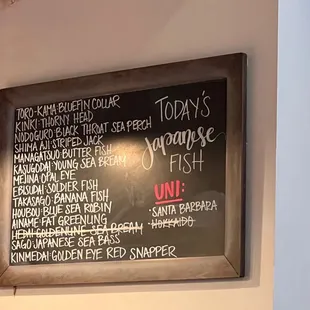 TORO-KAMA: BLUEFIN COLLAR
KINKI: THORNY HEAD
NODOGURO: BLACK THROAT SEA PERCH
SHIMA AJI: STRIPED JACK
MANAGATSUO: BUTTER FISH
KASUGODAI: YOUNG SEA BREAM
MEJINA OPAL EYE
EBISUDAI: SOLDIER FISH
TAKASAGO: BANANA FISH
HOUBOU: BLUE SEA ROBIN
AINAME: FAT GREENLING
HEDAI: GOLDENLINE SEA BREAM
SAGO JAPANESE SEA BASS
KINMEDAI: GOLDEN EYE RED SNAPPER
TODAY'S
Japanese
FISH
UNI:
• SANTA BARBARA
• HOKKAIDO